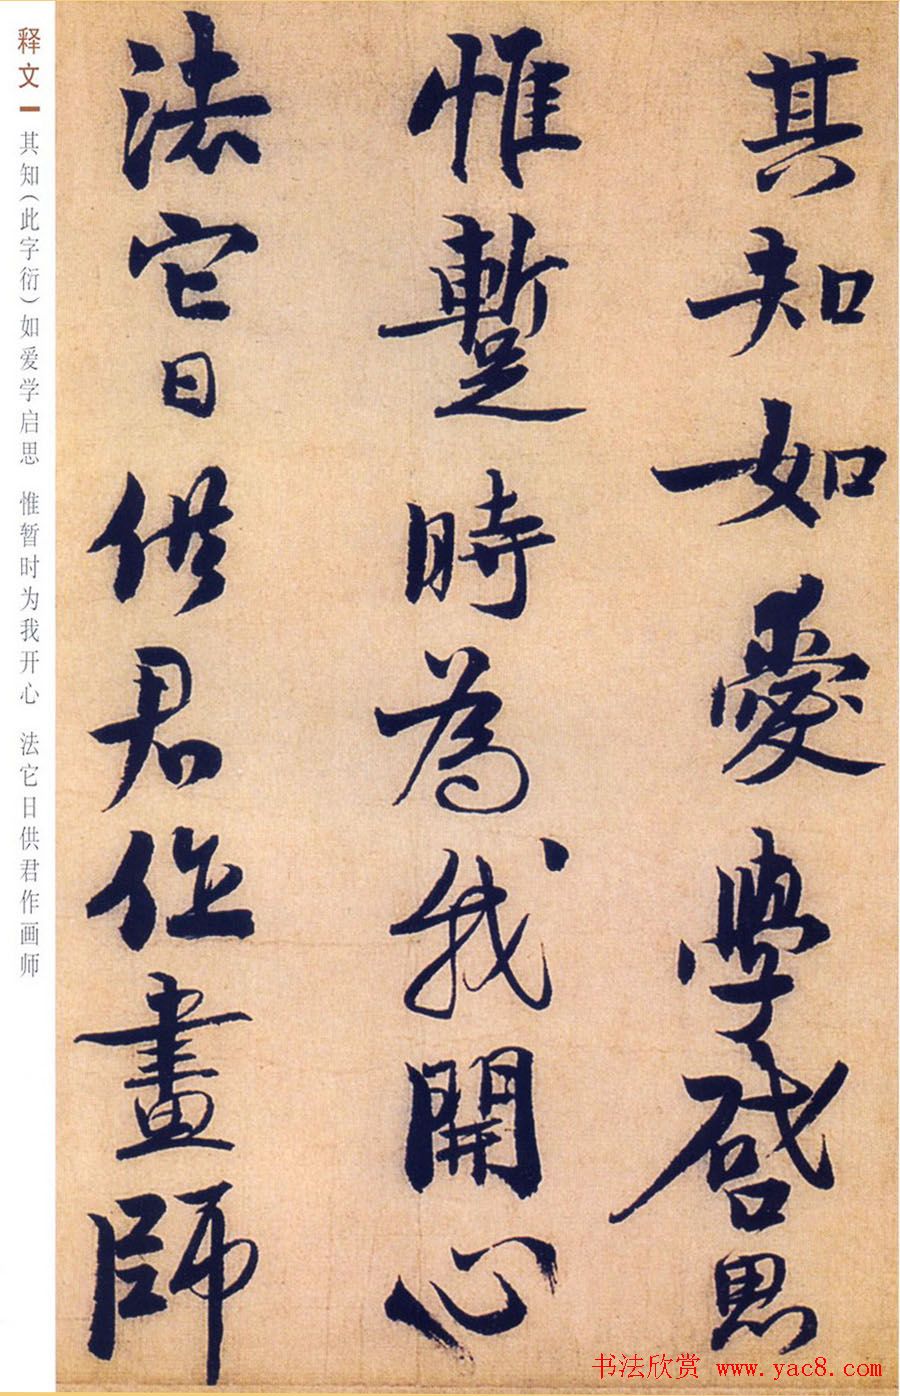 其知如愛學啟思
惟蹔時為我開心
法它日供君作畫師
释文 其知(此字衍)如爱学启思 惟暂时为我开心 法它日供君作画师
书法欣赏 www.yac8.com